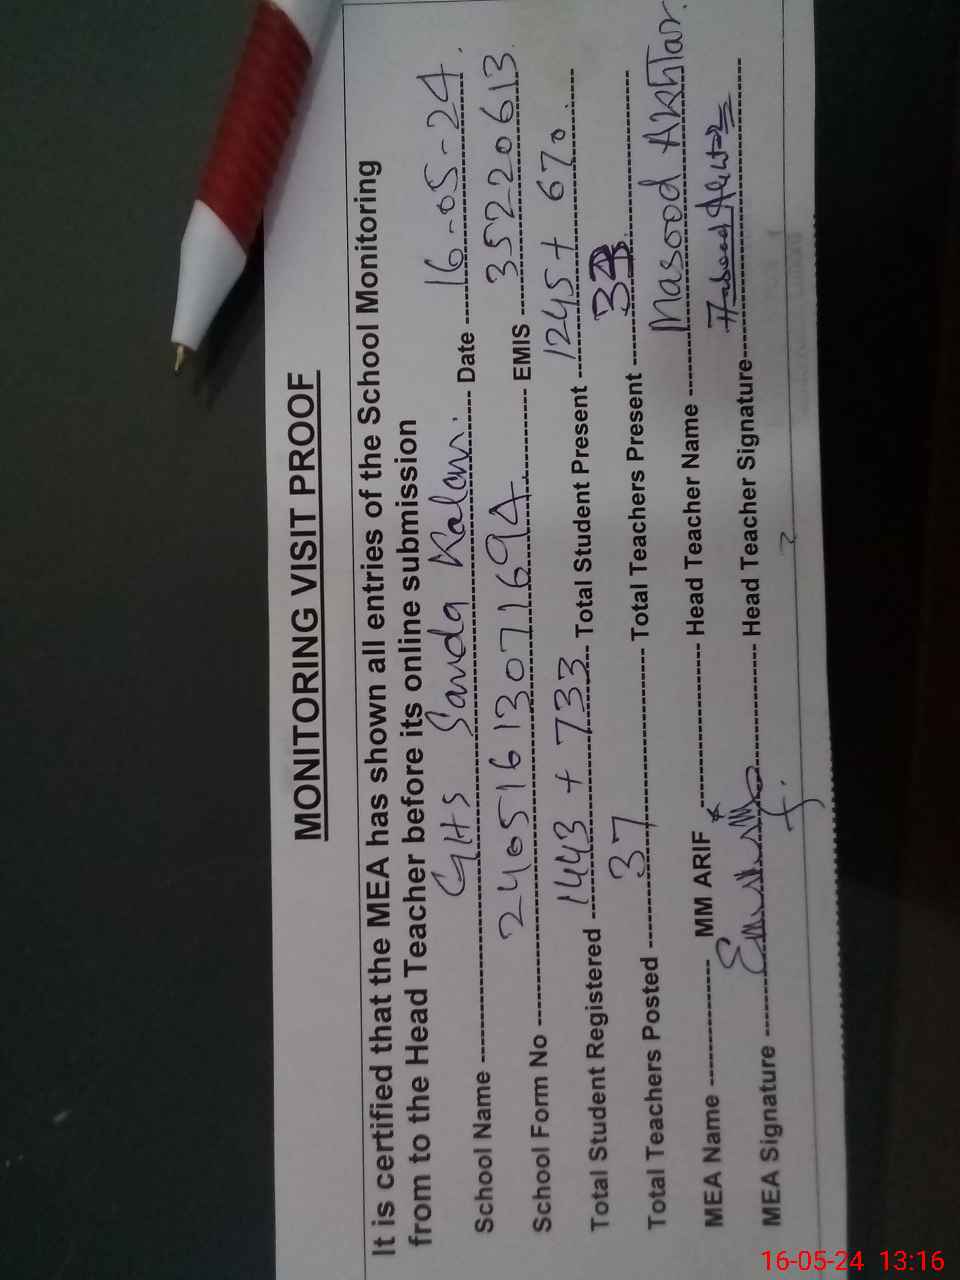 MONITORING VISIT PROOF
It is certified that the MEA has shown all entries of the School Monitoring
from to the Head Teacher before its online submission
School Name GHS Sanda Kalan. Date 16-05-24.
School Form No 24051613071694 EMIS 35220613.
Total Student Registered 1443 + 733 Total Student Present 1245 + 670
Total Teachers Posted 37 Total Teachers Present
MEA Name MM ARIF Head Teacher Name Masood Akhtar.
MEA Signature Head Teacher Signature
16-05-24 13:16